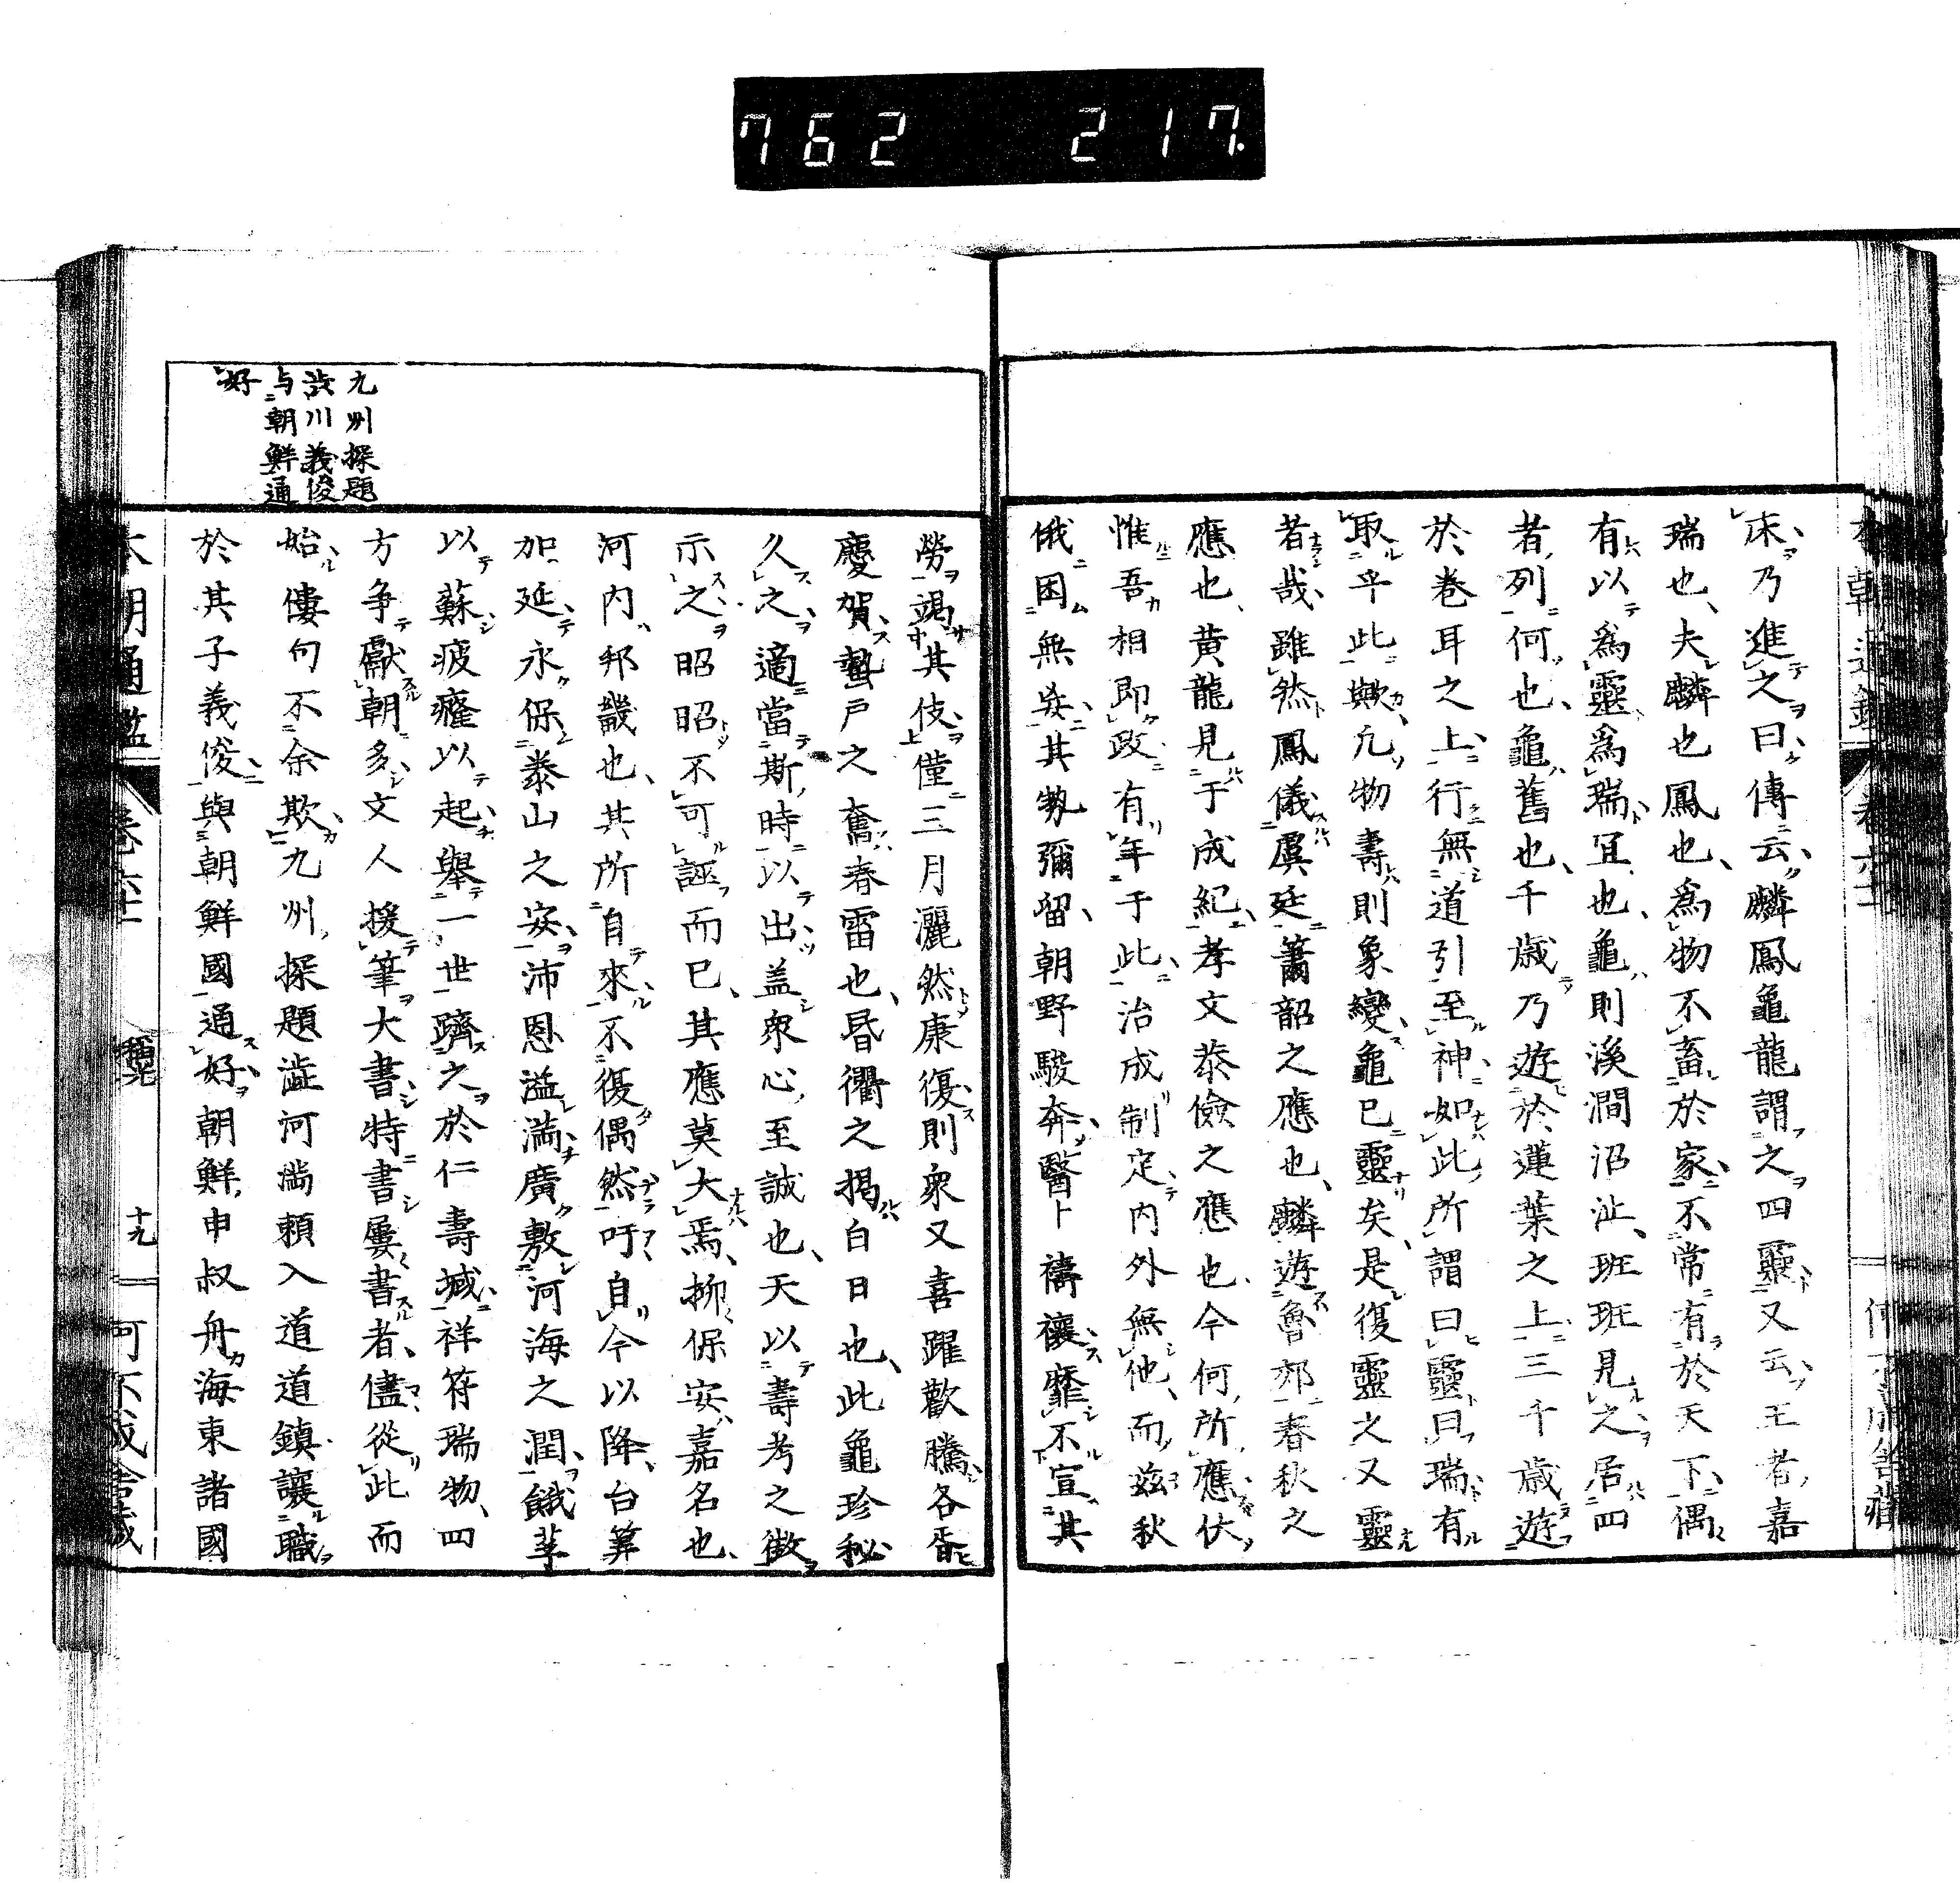 762 217.
床乃進之曰傳云麟鳳龜龍謂之四靈又云王者嘉
瑞也夫麟也鳳也爲物不畜於家不常有於天下偶
有以爲靈爲瑞宜也龜則溪澗沼沚班班見之居四
者列何也龜舊也千歳乃遊於蓮葉之上三千歳遊
於卷耳之上行無道引至神如此所謂曰靈曰瑞有
取乎此歟凢物壽則象變龜已靈矣是復靈之又靈
者哉雖然鳳儀虞廷簫韶之應也麟遊魯郊春秋之
應也黄龍見于成紀孝文恭儉之應也今何所應伏
惟吾相即政有年于此治成制定内外無他而兹秋
俄困無妄其勢彌留朝野駿奔醫卜禱禳靡不宣其
勞竭其伎僅三月灑然康復則衆又喜躍歡騰各胥
慶賀蟄戸之奮春雷也昏衢之揭白日也此龜珍秘
久之適當斯時以出盖衆心至誠也天以壽考之徴
示之昭昭不可誣而已其應莫大焉抑保安嘉名也
河内邦畿也其所自來不復偶然吁自今以降台算
加延永保泰山之安沛恩溢満廣敷河海之潤餓莩
以蘇疲癃以起舉一世躋之於仁壽域祥符瑞物四
方争獻朝多文人援筆大書特書屢書者儘從此而
始僂句不余欺九州探題澁河満頼入道道鎮讓職
於其子義俊與朝鮮國通好朝鮮申叔舟海東諸國
九州探題
渋川義俊
与朝鮮通
好
本朝通鑑 卷 十九